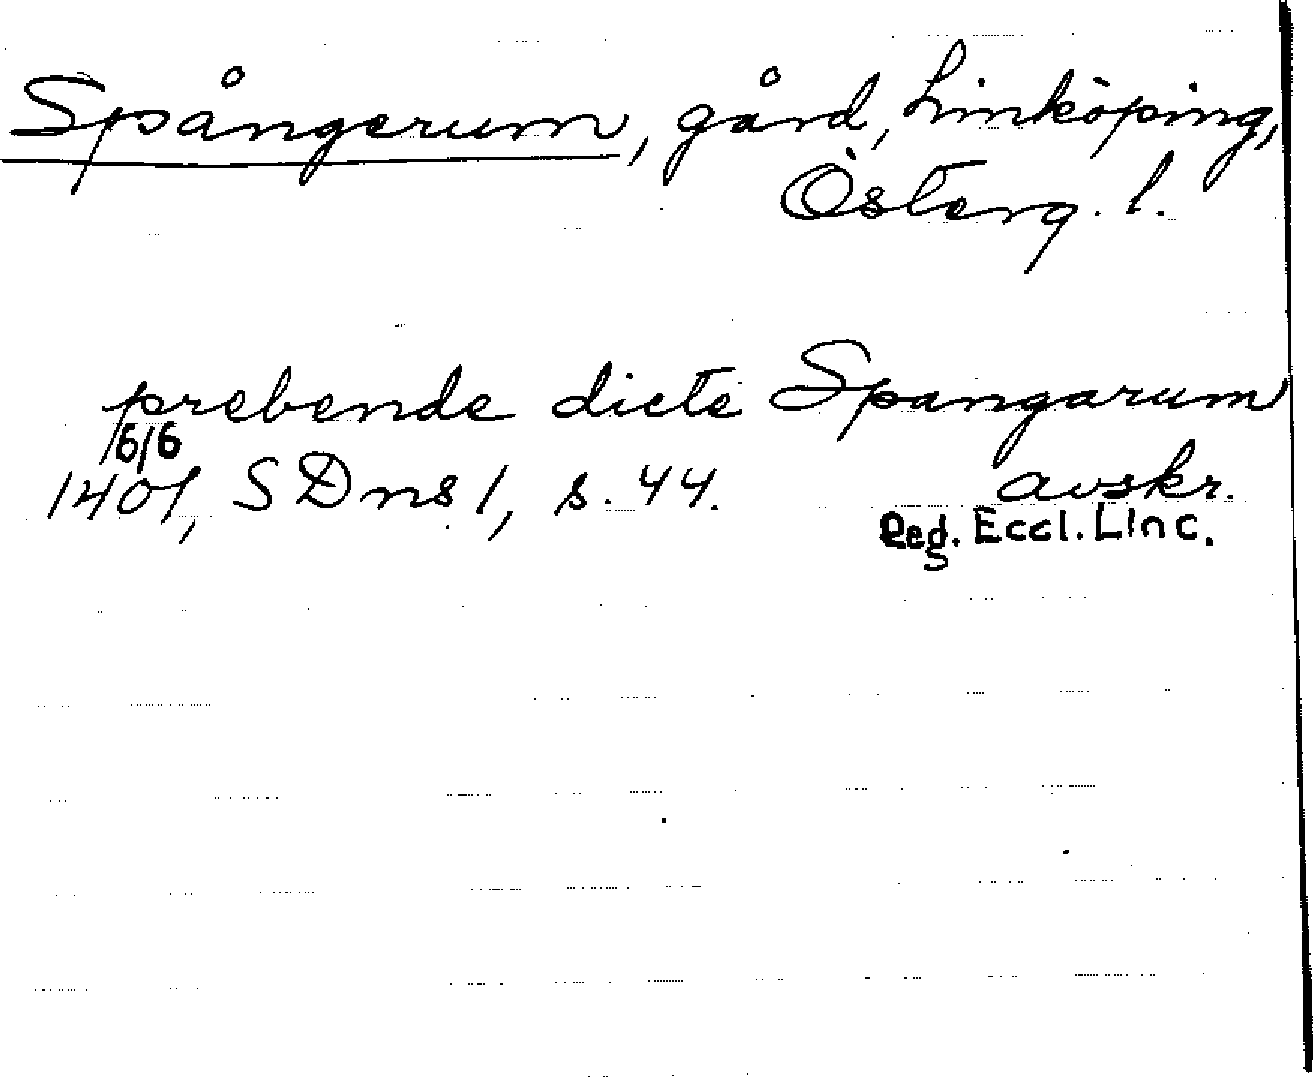 Spångerum, gård, Linköping,
Österg. l.
prebende dicte Spangarum
16/6
1401, SDns 1, s. 44. avskr.
Reg. Eccl. Linc.